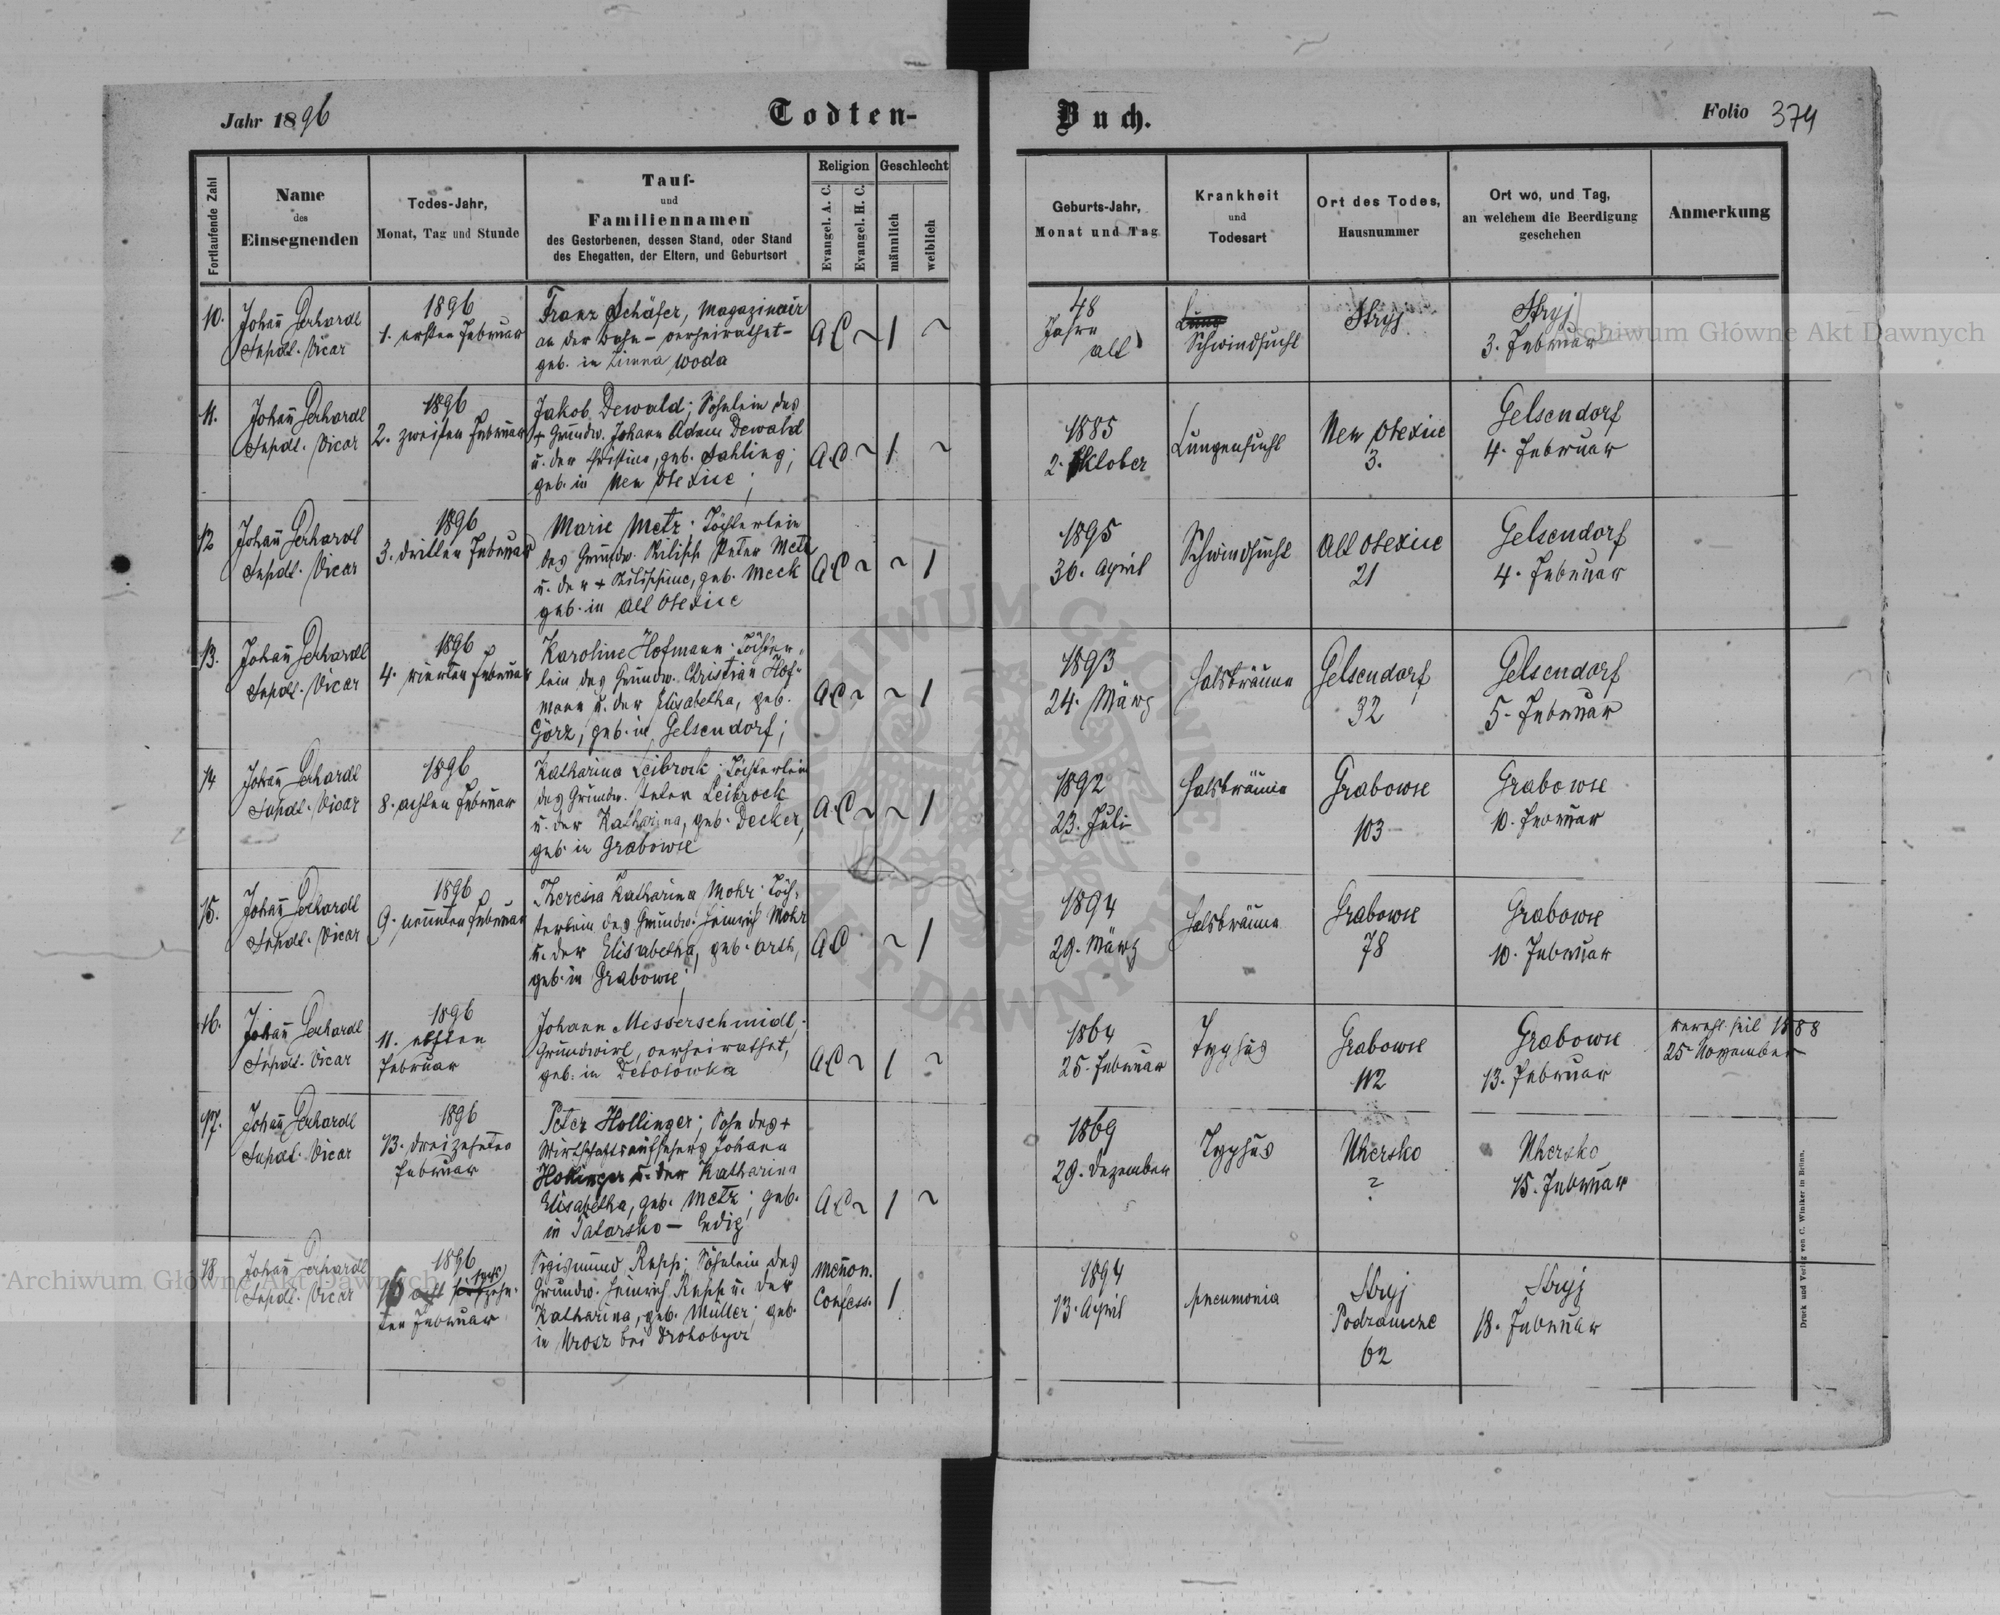 Jahr 1896
Todten-
Buch.
Folio 374
Fortlaufende Zahl
Name
des
Einsegnenden
Todes-Jahr,
Monat, Tag und Stunde
Tauf-
und
Familiennamen
des Gestorbenen, dessen Stand, oder Stand
des Ehegatten, der Eltern, und Geburtsort
Religion
Evangel. A. C.
Evangel. H. C.
Geschlecht
männlich
weiblich
Geburts-Jahr,
Monat und Tag
Krankheit
und
Todesart
Ort des Todes,
Hausnummer
Ort wo, und Tag,
an welchem die Beerdigung
geschehen
Anmerkung
10.
Johan Gerhardt
Supdt. Vicar
1896
1. ersten Februar
Franz Schäfer, Magazinair
an der Bahn – verheirathet –
geb. in Zimna woda
A C ~ 1 ~
48
Jahre
alt
Schwindsucht
Stryj
Stryj
3. Februar
11.
Johan Gerhardt
Supdt. Vicar
1896
2. zweiten Februar
Jakob Dewald; Söhnlein des
+ Grundw. Johann Adam Dewald
u. der Christine, geb. Sahling;
geb. in Neu Olexice;
A C ~ 1 ~
1885
2. Oktober
Lungensucht
Neu Olexice
3.
Gelsendorf
4. Februar
12
Johan Gerhardt
Supdt. Vicar
1896
3. dritten Februar
Marie Metz; Töchterlein
des Grundw. Peter Metz
u. der + geb. Meck
geb. in Alt Olexice
A C ~ ~ 1
1895
30. April
Schwindsucht
Alt Olexice
21
Gelsendorf
4. Februar
13.
Johan Gerhardt
Supdt. Vicar
1896
4. vierten Februar
Karoline Hofmann; Töchter-
lein des Grundw. Christian Hof-
mann u. der Elisabetha, geb.
Görz, geb. in Gelsendorf;
A C ~ ~ 1
1893
24. März
Halsbräune
Gelsendorf
32
Gelsendorf
5. Februar
14
Johan Gerhardt
Supdt. Vicar
1896
8. achten Februar
Katharina Leibrock; Töchterlein
des Grundw. Peter Leibrock
u. der Katharina, geb. Decker,
geb. in Grabowce
A C ~ ~ 1
1892
23. Juli
Halsbräune
Grabowce
103
Grabowce
10. Februar
15.
Johan Gerhardt
Supdt. Vicar
1896
9. neunten Februar
Theresia Katharina Mohr; Töch-
terlein des Grundw. Heinrich Mohr
u. der Elisabetha, geb. Orth,
geb. in Grabowce;
A C ~ 1
1894
29. März
Halsbräune
Grabowce
78
Grabowce
10. Februar
16.
Johan Gerhardt
Supdt. Vicar
1896
11. elften
Februar
Johann Messerschmidt,
Grundwirt, verheirathet,
geb. in
A C ~ 1 ~
1864
25. Februar
Typhus
Grabowce
112
Grabowce
13. Februar
verehl. seit 1888
25 November
17.
Johan Gerhardt
Supdt. Vicar
1896
13. dreizehnten
Februar
Peter Hollinger; Sohn des +
Wirthschaftsaufsehers Johann
Hollinger u. der Katharina
Elisabetha, geb. Metz; geb.
in Tatarsko – ledig
A C ~ 1 ~
1869
29. Dezember
Typhus
Uhersko
?
Uhersko
15. Februar
18
Johan Gerhardt
Supdt. Vicar
1896
16
ten Februar
Sigismund Rupp; Söhnlein des
Grundw. Heinrich Rupp u. der
Katharina, geb. Müller; geb.
in Urosz bei Drohobycz
Menon.
Confess. 1
1894
13. April
pneumonia
Stryj
Podzamcze
62
Stryj
18. Februar
Druck und Verlag von C. Winiker in Brünn.
Archiwum Główne Akt Dawnych
Archiwum Główne Akt Dawnych
ARCHIWUM GŁÓWNE · AKT DAWNYCH ·